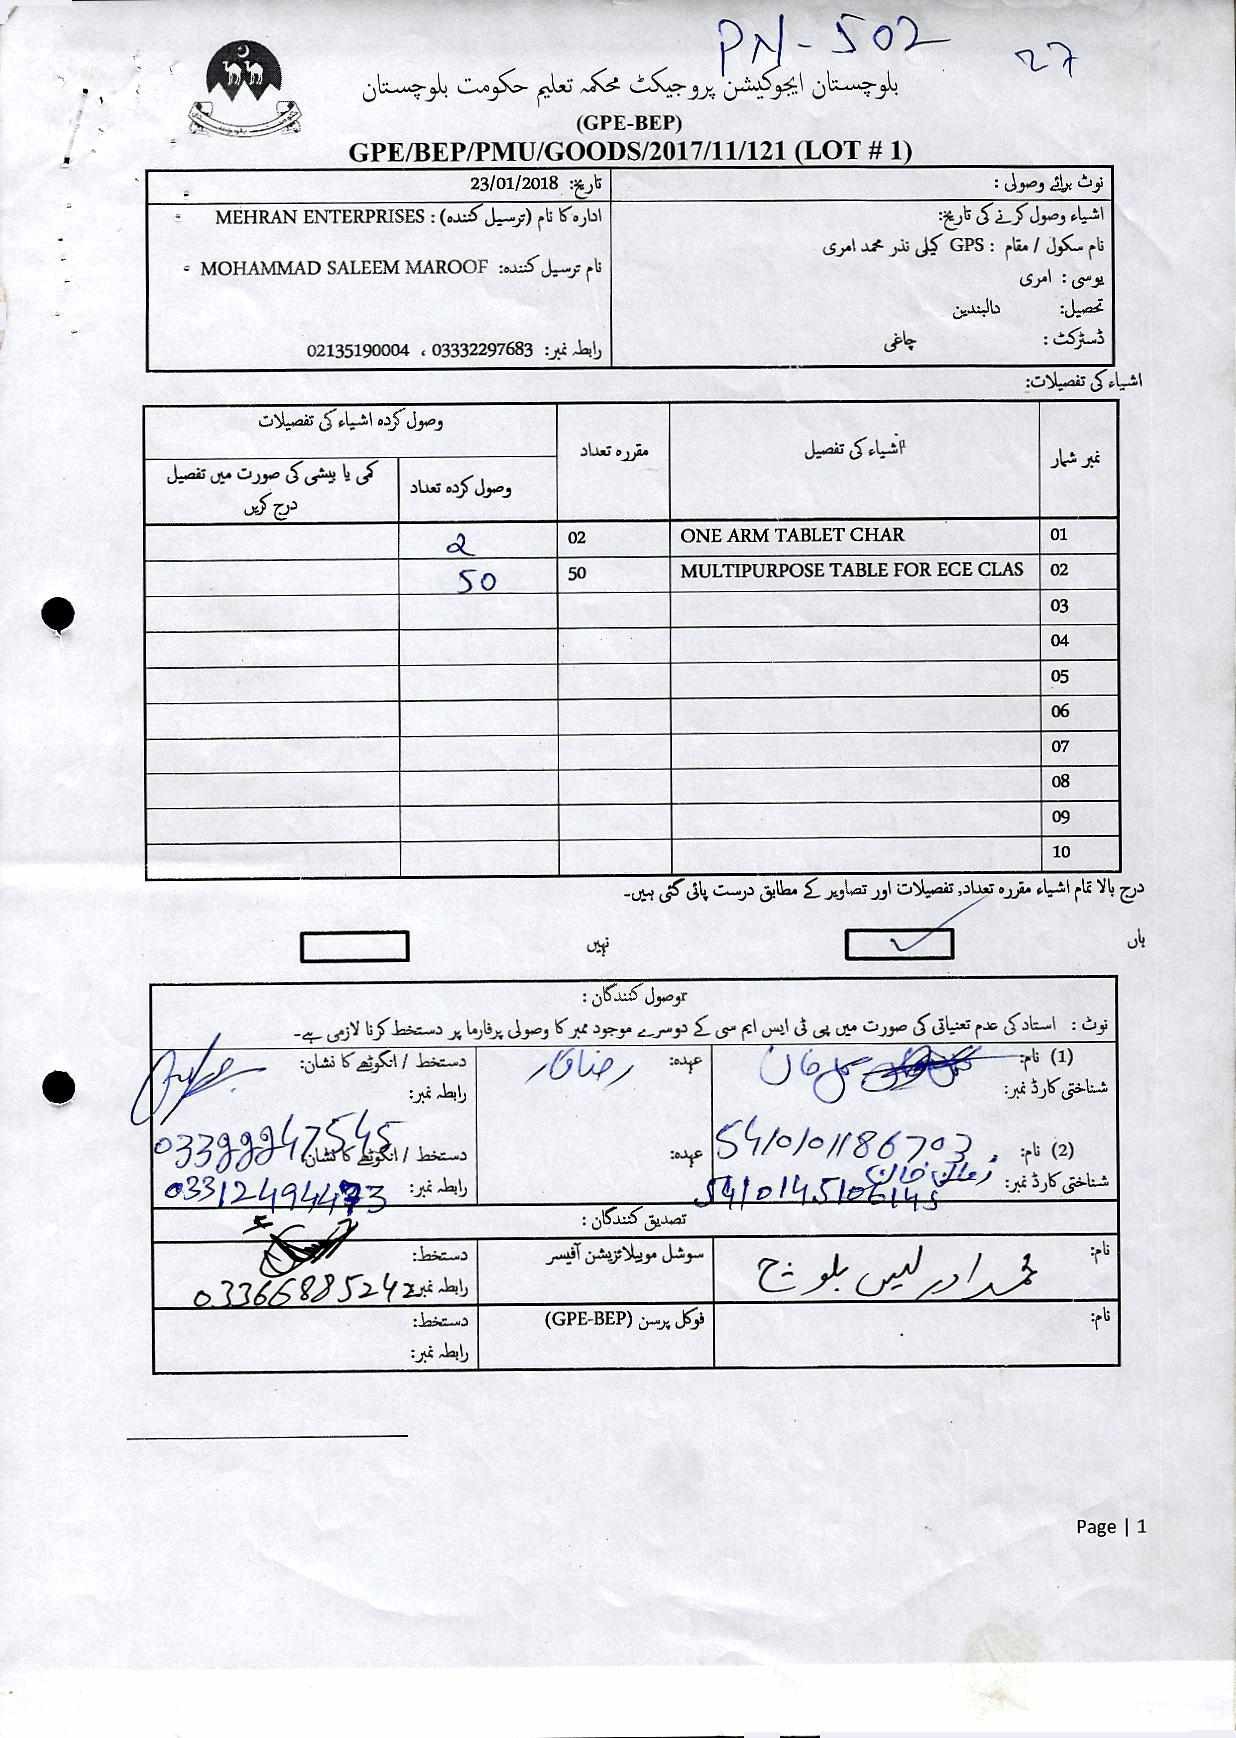 PN-502
27
بلوچستان ایجوکیشن پروجیکٹ محکمہ تعلیم حکومت بلوچستان
(GPE-BEP)
GPE/BEP/PMU/GOODS/2017/11/121 (LOT # 1)
نوٹ برائے وصولی :
تاریخ: 23/01/2018
اشیاء وصول کرنے کی تاریخ:
نام سکول / مقام : GPS کیلی نذر محمد امری
یوسی : امری
تحصیل: دالبندین
ڈسٹرکٹ : چاغی
ادارہ کا نام (ترسیل کنندہ) : MEHRAN ENTERPRISES
نام ترسیل کنندہ: MOHAMMAD SALEEM MAROOF
رابطہ نمبر: 03332297683 ، 02135190004
اشیاء کی تفصیلات:
نمبر شمار اشیاء کی تفصیل مقررہ تعداد وصول کردہ اشیاء کی تفصیلات
وصول کردہ تعداد کمی یا بیشی کی صورت میں تفصیل درج کریں
01 ONE ARM TABLET CHAR 02 2
02 MULTIPURPOSE TABLE FOR ECE CLAS 50 50
03
04
05
06
07
08
09
10
درج بالا تمام اشیاء مقررہ تعداد, تفصیلات اور تصاویر کے مطابق درست پائی گئی ہیں۔
ہاں ✓ نہیں
وصول کنندگان :
نوٹ : استاد کی عدم تعیناتی کی صورت میں پی ٹی ایس ایم سی کے دوسرے موجود ممبر کا وصولی پرفارما پر دستخط کرنا لازمی ہے۔
(1) نام: گل خان عہدہ: رضاکار دستخط / انگوٹھے کا نشان:
شناختی کارڈ نمبر: رابطہ نمبر:
5410101186703 03399947545
(2) نام: خان عہدہ: دستخط / انگوٹھے کا نشان:
شناختی کارڈ نمبر: 5410145106145 رابطہ نمبر: 03312494473
تصدیق کنندگان :
نام: محمد ادریس بلوچ سوشل موبیلائزیشن آفیسر دستخط:
رابطہ نمبر: 03366885242
نام: فوکل پرسن (GPE-BEP) دستخط:
رابطہ نمبر:
Page | 1